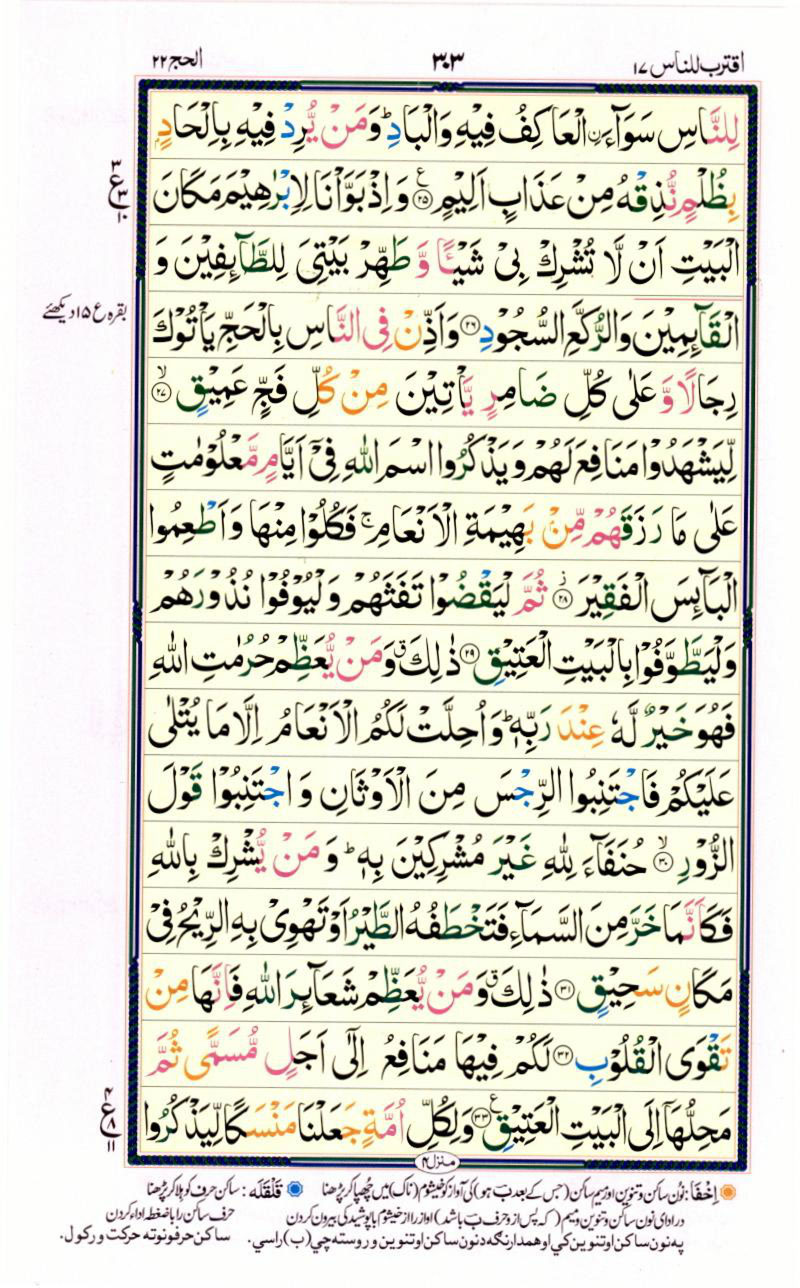 اقترب للناس ۱۷
۳۰۳
الحج ۲۲
لِلنَّاسِ سَوَآءَ اۨلْعَاكِفُ فِيْهِ وَالْبَادِ ؕ وَمَنْ يُّرِدْ فِيْهِ بِاِلْحَادٍۭ
بِظُلْمٍ نُّذِقْهُ مِنْ عَذَابٍ اَلِيْمٍ ۲۵ وَاِذْ بَوَّاْنَا لِاِبْرٰهِيْمَ مَكَانَ
الْبَيْتِ اَنْ لَّا تُشْرِكْ بِىْ شَيْـًٔا وَّ طَهِّرْ بَيْتِىَ لِلطَّآئِفِيْنَ وَ
الْقَآئِمِيْنَ وَالرُّكَّعِ السُّجُوْدِ ۲۶ وَاَذِّنْ فِى النَّاسِ بِالْحَجِّ يَاْتُوْكَ
رِجَالًا وَّ عَلٰى كُلِّ ضَامِرٍ يَّاْتِيْنَ مِنْ كُلِّ فَجٍّ عَمِيْقٍ ۙ ۲۷
لِّيَشْهَدُوْا مَنَافِعَ لَهُمْ وَيَذْكُرُوا اسْمَ اللّٰهِ فِىْٓ اَيَّامٍ مَّعْلُوْمٰتٍ
عَلٰى مَا رَزَقَهُمْ مِّنْۢ بَهِيْمَةِ الْاَنْعَامِ ۚ فَكُلُوْا مِنْهَا وَاَطْعِمُوا
الْبَآئِسَ الْفَقِيْرَ ۲۸ ثُمَّ لْيَقْضُوْا تَفَثَهُمْ وَلْيُوْفُوْا نُذُوْرَهُمْ
وَلْيَطَّوَّفُوْا بِالْبَيْتِ الْعَتِيْقِ ۲۹ ذٰلِكَ ۗ وَمَنْ يُّعَظِّمْ حُرُمٰتِ اللّٰهِ
فَهُوَ خَيْرٌ لَّهٗ عِنْدَ رَبِّهٖ ؕ وَاُحِلَّتْ لَكُمُ الْاَنْعَامُ اِلَّا مَا يُتْلٰى
عَلَيْكُمْ فَاجْتَنِبُوا الرِّجْسَ مِنَ الْاَوْثَانِ وَ اجْتَنِبُوْا قَوْلَ
الزُّوْرِ ۙ ۳۰ حُنَفَآءَ لِلّٰهِ غَيْرَ مُشْرِكِيْنَ بِهٖ ؕ وَ مَنْ يُّشْرِكْ بِاللّٰهِ
فَكَاَنَّمَا خَرَّ مِنَ السَّمَآءِ فَتَخْطَفُهُ الطَّيْرُ اَوْ تَهْوِىْ بِهِ الرِّيْحُ فِىْ
مَكَانٍ سَحِيْقٍ ۳۱ ذٰلِكَ ۗ وَمَنْ يُّعَظِّمْ شَعَآئِرَ اللّٰهِ فَاِنَّهَا مِنْ
تَقْوَى الْقُلُوْبِ ۳۲ لَكُمْ فِيْهَا مَنَافِعُ اِلٰٓى اَجَلٍ مُّسَمًّى ثُمَّ
مَحِلُّهَآ اِلَى الْبَيْتِ الْعَتِيْقِ ۳۳ وَلِكُلِّ اُمَّةٍ جَعَلْنَا مَنْسَكًا لِّيَذْكُرُوا
۳ ع ۳ ۱۰
بقرہ ع ۱۵ دیکھئے
۴ ع ۸ ۱۱
منزل ۴
اِخفَا: نون ساکن و تنوین اور میم ساکن (جس کے بعد ب ہو) کی آواز کو خیشوم (ناک) میں چھپا کر پڑھنا
قَلْقَلَہ: ساکن حرف کو ہلا کر پڑھنا
در ادای نون ساکن و تنوین و میم (که پس از و حرف ب باشد) آواز را از خیشوم با پوشیدگی بیرون کردن
حرف ساکن را با ضغطه اداء کردن
په نون ساکن او تنوین کي او همدارنګه د نون ساکن او تنوین وروسته چي (ب) راسي.
ساکن حرفونو ته حرکت ورکول.